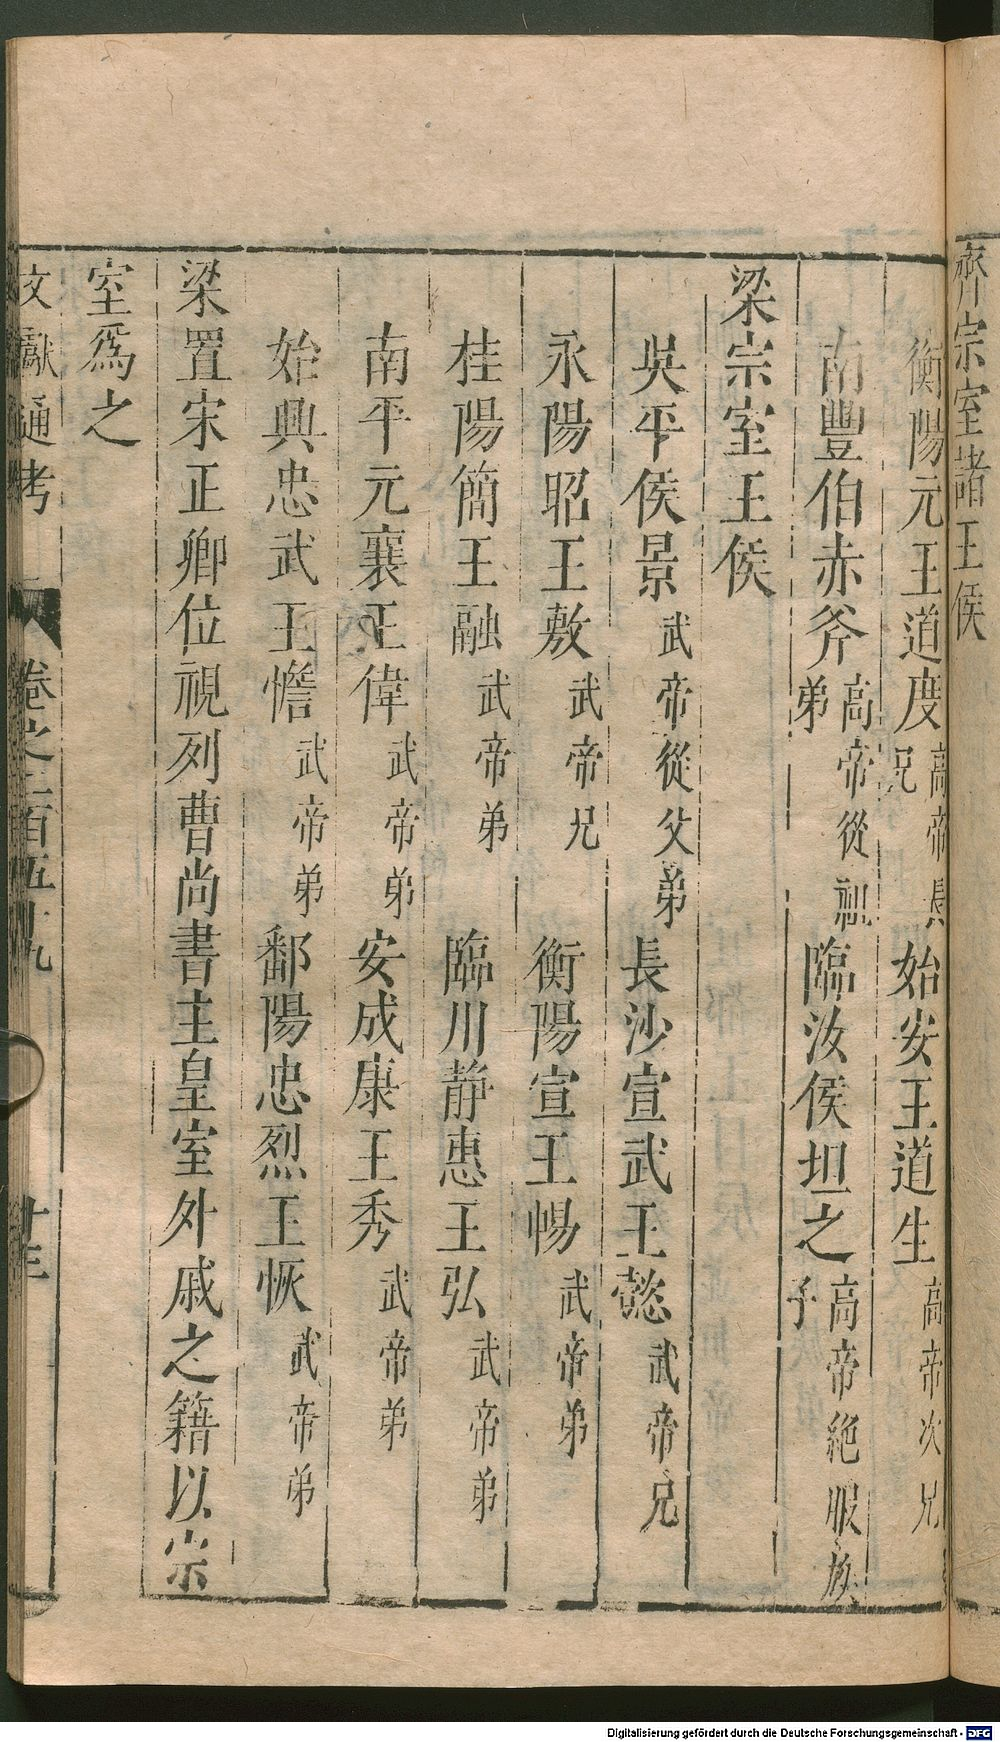 齊宗室諸王侯
衡陽元王道度高帝長兄 始安王道生高帝次兄
南豐伯赤斧高帝從祖弟 臨汝侯坦之高帝絶服族子
梁宗室王侯
吳平侯景武帝從父弟 長沙宣武王懿武帝兄
永陽昭王敷武帝兄 衡陽宣王暢武帝弟
桂陽簡王融武帝弟 臨川靜惠王弘武帝弟
南平元襄王偉武帝弟 安成康王秀武帝弟
始興忠武王憺武帝弟 鄱陽忠烈王恢武帝弟
梁置宋正卿位視列曹尚書主皇室外戚之籍以宗
室爲之
文獻通考 卷之二百五十九 廿三
Digitalisierung gefördert durch die Deutsche Forschungsgemeinschaft - DFG